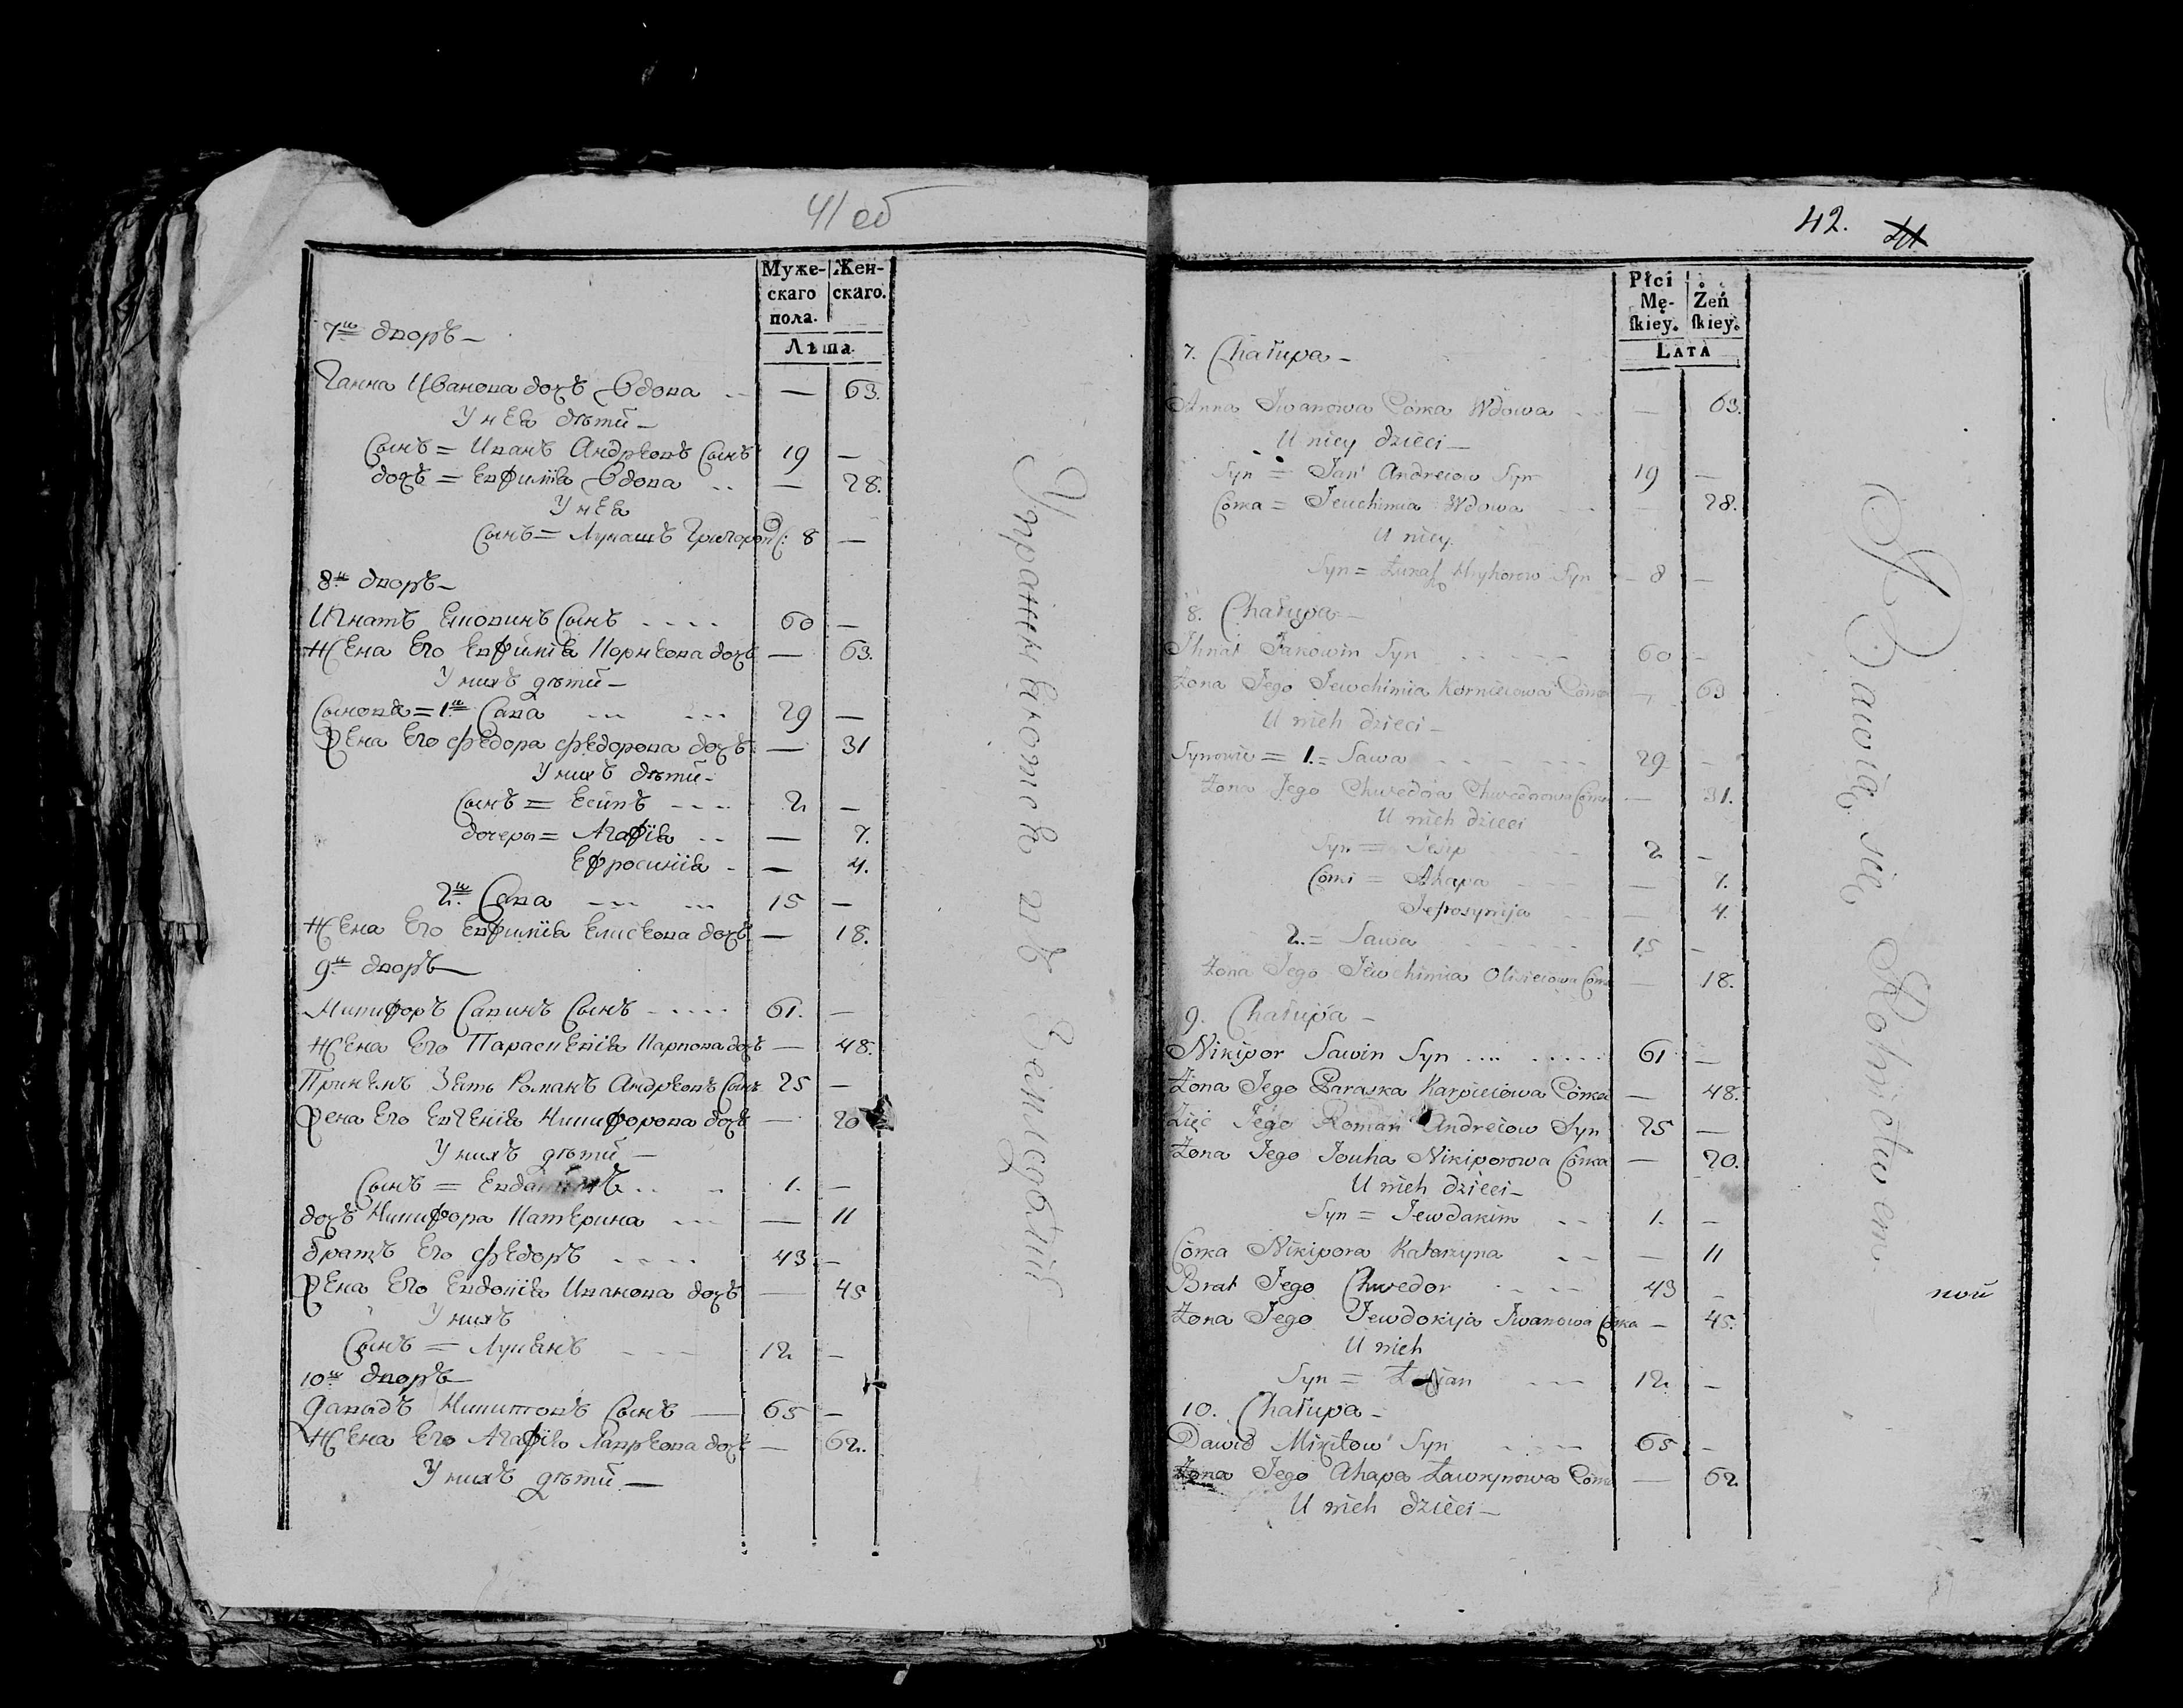 41 об
Муже-
скаго
пола.
Жен-
скаго.
Лѣта.
7й дворъ —
Ганна Иванова дочь Вдова — 63.
У нея дѣти —
Сынъ = Иванъ Андреевъ Сынъ 19 —
дочь = Евфимія Вдова — 28.
У нея
Сынъ = Лукашъ Григоров С: 8 —
8й дворъ —
Игнатъ Сынъ 60 —
Жена Его Евфимія Корнѣева дочь — 63.
У нихъ дѣти —
Сыновя = 1й Сава 29 —
Жена Его Федора Федорова дочь — 31
У нихъ дѣти —
Сынъ = Есипъ 2 —
дочеры = Агафія — 7.
Ефросинія — 4.
2й Сава 15 —
Жена Его Евфимія Елисѣева дочь — 18.
9й дворъ —
Никифоръ Савинъ Сынъ 61. —
Жена Его Параскевія Карпова дочь — 48.
Зять Романъ Андрѣевъ Сынъ 25 —
Жена Его Евгенія Никифорова дочь — 20
У нихъ дѣти —
Сынъ = 1. —
дочь Никифора Катерина — 11
братъ Его Федоръ 43 —
Жена Его Евдокія Иванова дочь — 45
У нихъ
Сынъ = Лукянъ 12 —
10й дворъ —
Давыдъ Никитовъ Сынъ — 65 —
Жена Его Агафія Лаврѣова дочь — 62.
У нихъ дѣти —
Упражняютса въ
42.
Płci
Mę-
skiey.
Żeń
skiey.
LATA
7. Chałupa —
Anna Iwanowa Córka Wdowa — 63.
U niey dzieci —
Syn = Jan Andreiow Syn 19 —
Córka = Jeuchimia Wdowa — 28.
U niey.
Syn = Łukasz Hryhorow Syn 8 —
8. Chałupa —
Ihnat Jakowin Syn 60 —
Żona Jego Jewchimia Korniciowa Córka — 63
U nich dzieci —
Synowie = 1. = Sawa 29 —
Żona Jego Chwedora Chwedorowa Córka — 31.
U nich dzieci
Syn = Jesip 2 —
Córki = Ahapa — 7.
Jefrosynija — 4.
2. = Sawa 15 —
Żona Jego Jewchimia Olisieiowa Córka — 18.
9. Chałupa —
Nikipor Sawin Syn 61 —
Żona Jego Paraska Karpieiowa Córka — 48.
Zięć Jego Roman Andreiow Syn 25 —
Żona Jego Jouha Nikiporowa Córka — 20.
U nich dzieci —
Syn = Jewdakim 1. —
Córka Nikipora Katarzyna — 11
Brat Jego Chwedor 43 —
Żona Jego Jewdokija Iwanowa Córka — 45.
U nich
Syn = 12 —
10. Chałupa —
Dawid Mikitow Syn 65 —
Żona Jego Ahapa Ławrynowa Córka — 62
U nich dzieci —
Bawią się Rolnictwem.
ной